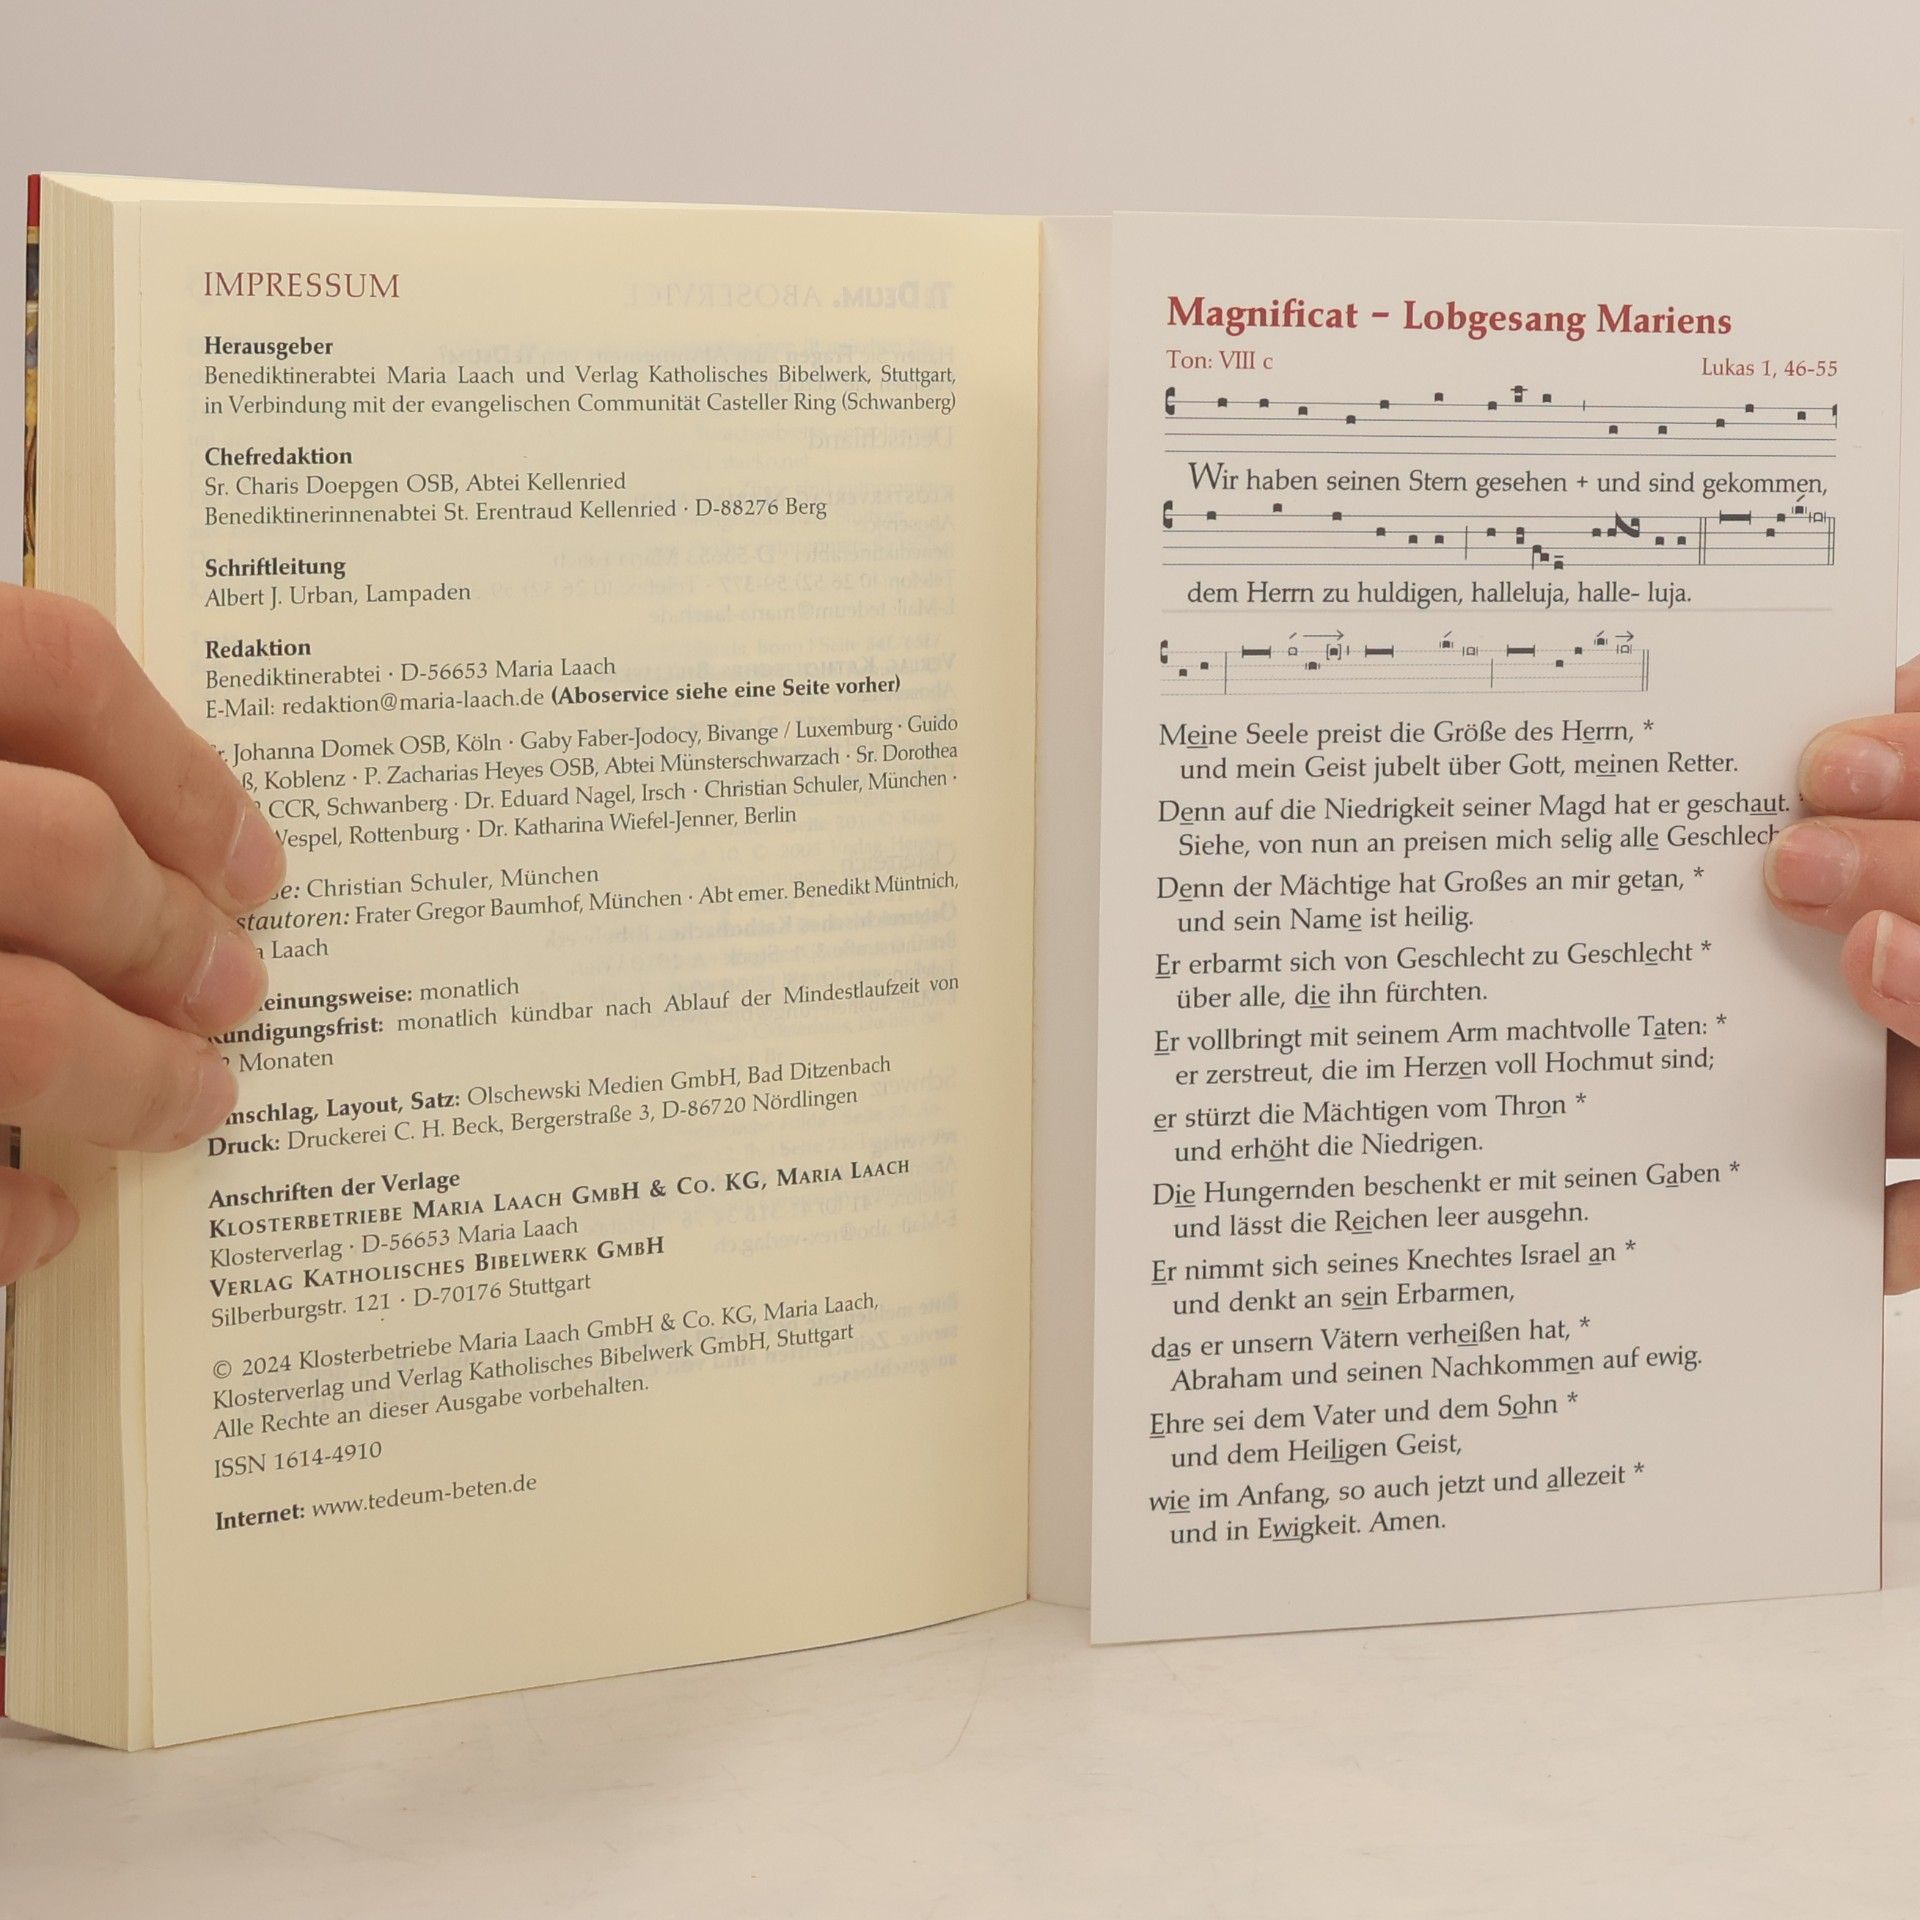 IMPRESSUM
Herausgeber
Benediktinerabtei Maria Laach und Verlag Katholisches Bibelwerk, Stuttgart,
in Verbindung mit der evangelischen Communität Casteller Ring (Schwanberg)
Chefredaktion
Sr. Charis Doepgen OSB, Abtei Kellenried
Benediktinerinnenabtei St. Erentraud Kellenried · D-88276 Berg
Schriftleitung
Albert J. Urban, Lampaden
Redaktion
Benediktinerabtei · D-56653 Maria Laach
E-Mail: redaktion@maria-laach.de (Aboservice siehe eine Seite vorher)
Johanna Domek OSB, Köln · Gaby Faber-Jodocy, Bivange / Luxemburg · Guido
Koblenz · P. Zacharias Heyes OSB, Abtei Münsterschwarzach · Sr. Dorothea
CCR, Schwanberg · Dr. Eduard Nagel, Irsch · Christian Schuler, München ·
Wespel, Rottenburg · Dr. Katharina Wiefel-Jenner, Berlin
Christian Schuler, München
Frater Gregor Baumhof, München · Abt emer. Benedikt Müntnich,
Laach
monatlich
Kündigungsfrist: monatlich kündbar nach Ablauf der Mindestlaufzeit von
Monaten
Umschlag, Layout, Satz: Olschewski Medien GmbH, Bad Ditzenbach
Druck: Druckerei C. H. Beck, Bergerstraße 3, D-86720 Nördlingen
Anschriften der Verlage
KLOSTERBETRIEBE MARIA LAACH GMBH & CO. KG, MARIA LAACH
Klosterverlag · D-56653 Maria Laach
VERLAG KATHOLISCHES BIBELWERK GMBH
Silberburgstr. 121 · D-70176 Stuttgart
© 2024 Klosterbetriebe Maria Laach GmbH & Co. KG, Maria Laach,
Klosterverlag und Verlag Katholisches Bibelwerk GmbH, Stuttgart
Alle Rechte an dieser Ausgabe vorbehalten.
ISSN 1614-4910
Internet: www.tedeum-beten.de
Magnificat – Lobgesang Mariens
Ton: VIII c
Lukas 1, 46-55
Wir haben seinen Stern gesehen + und sind gekommen,
dem Herrn zu huldigen, halleluja, halle- luja.
Meine Seele preist die Größe des Herrn, *
und mein Geist jubelt über Gott, meinen Retter.
Denn auf die Niedrigkeit seiner Magd hat er geschaut. *
Siehe, von nun an preisen mich selig alle
Denn der Mächtige hat Großes an mir getan, *
und sein Name ist heilig.
Er erbarmt sich von Geschlecht zu Geschlecht *
über alle, die ihn fürchten.
Er vollbringt mit seinem Arm machtvolle Taten: *
er zerstreut, die im Herzen voll Hochmut sind;
er stürzt die Mächtigen vom Thron *
und erhöht die Niedrigen.
Die Hungernden beschenkt er mit seinen Gaben *
und lässt die Reichen leer ausgehn.
Er nimmt sich seines Knechtes Israel an *
und denkt an sein Erbarmen,
das er unsern Vätern verheißen hat, *
Abraham und seinen Nachkommen auf ewig.
Ehre sei dem Vater und dem Sohn *
und dem Heiligen Geist,
wie im Anfang, so auch jetzt und allezeit *
und in Ewigkeit. Amen.